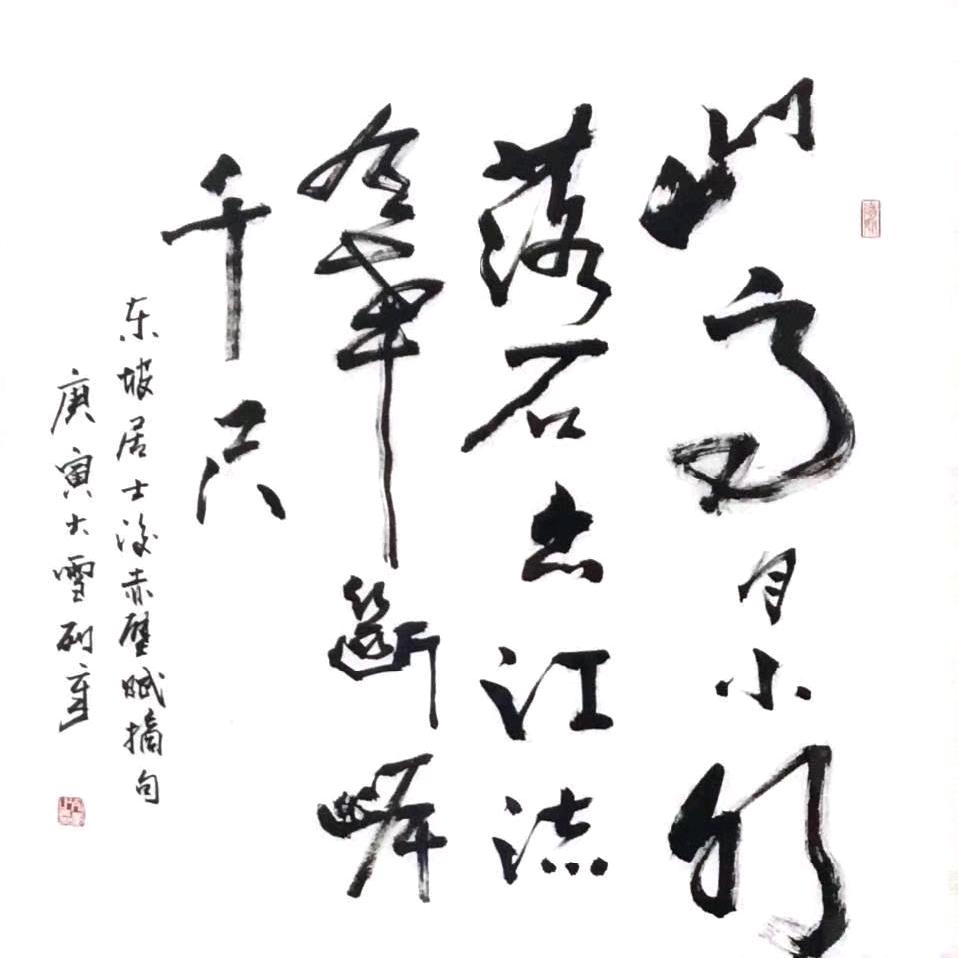 山高月小水
落石出江流
有聲斷岸
千尺
东坡居士後赤壁賦摘句
庚寅大雪